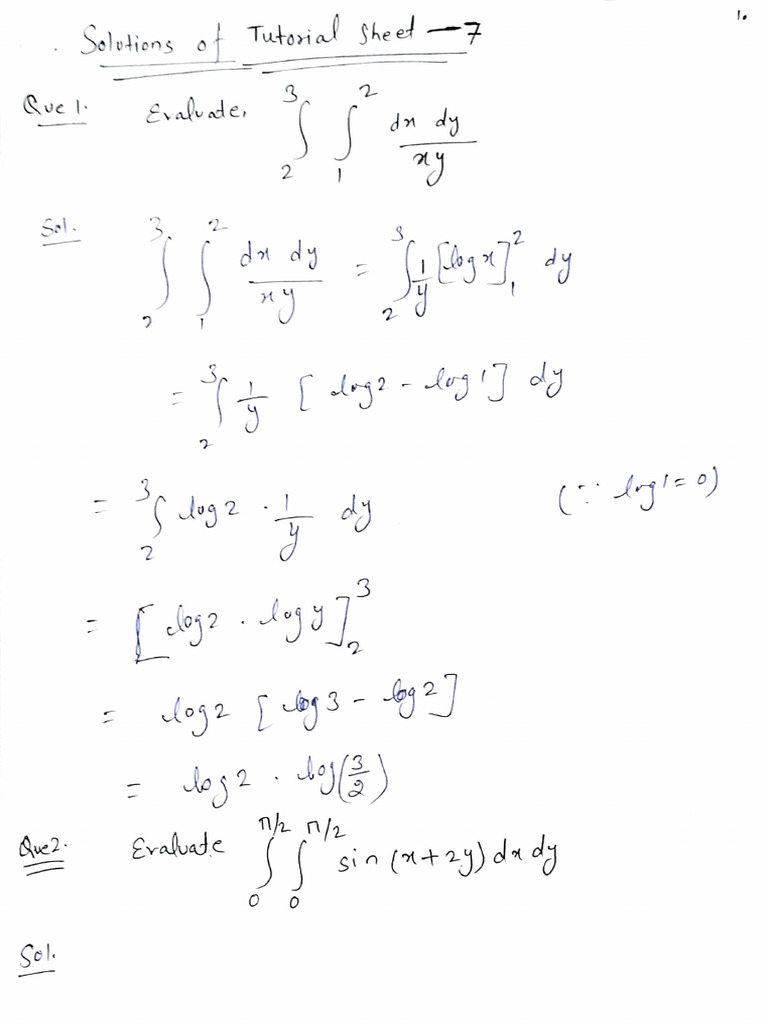 1.
Solutions of Tutorial Sheet — 7
Que 1. Evaluate, ∫₂³ ∫₁² dx dy / xy
Sol. ∫₂³ ∫₁² dx dy / xy = ∫₂³ 1/y [log x]₁² dy
= ∫₂³ 1/y [log 2 - log 1] dy
= ∫₂³ log 2 · 1/y dy (∵ log 1 = 0)
= [log 2 · log y]₂³
= log 2 [log 3 - log 2]
= log 2 · log(3/2)
Que 2. Evaluate ∫₀^π/2 ∫₀^π/2 sin (x + 2y) dx dy
Sol.